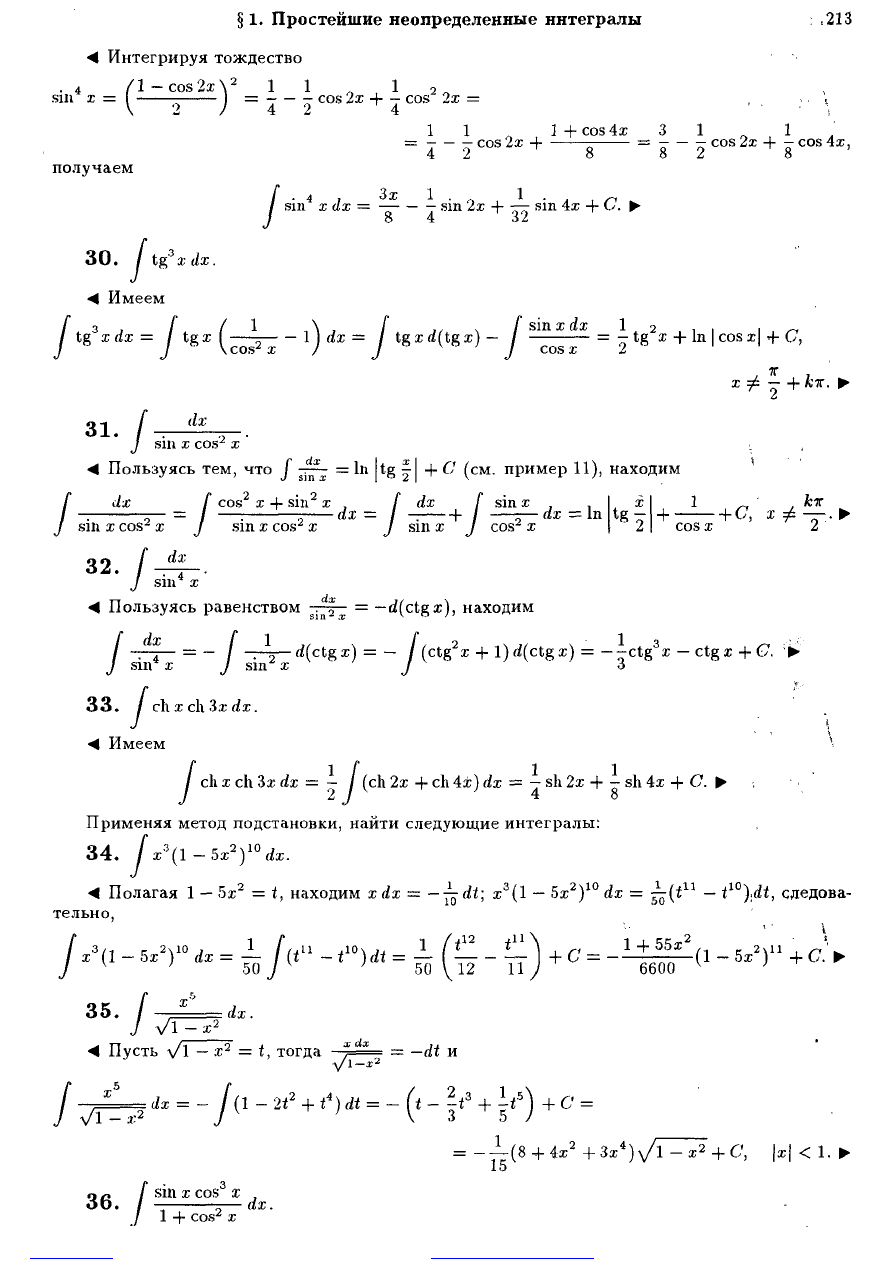 § 1. Простейшие неопределенные интегралы 213
◄ Интегрируя тождество
sin⁴ x = ((1 − cos 2x)/2)² = 1/4 − 1/2 cos 2x + 1/4 cos² 2x =
= 1/4 − 1/2 cos 2x + (1 + cos 4x)/8 = 3/8 − 1/2 cos 2x + 1/8 cos 4x,
получаем
∫ sin⁴ x dx = 3x/8 − 1/4 sin 2x + 1/32 sin 4x + C. ►
30. ∫ tg³x dx.
◄ Имеем
∫ tg³x dx = ∫ tg x (1/cos² x − 1) dx = ∫ tg x d(tg x) − ∫ sin x dx/cos x = 1/2 tg²x + ln |cos x| + C,
x ≠ π/2 + kπ. ►
31. ∫ dx/(sin x cos² x).
◄ Пользуясь тем, что ∫ dx/sin x = ln |tg x/2| + C (см. пример 11), находим
∫ dx/(sin x cos² x) = ∫ (cos² x + sin² x)/(sin x cos² x) dx = ∫ dx/sin x + ∫ sin x/cos² x dx = ln |tg x/2| + 1/cos x + C, x ≠ kπ/2. ►
32. ∫ dx/sin⁴ x.
◄ Пользуясь равенством dx/sin² x = −d(ctg x), находим
∫ dx/sin⁴ x = − ∫ 1/sin² x d(ctg x) = − ∫ (ctg²x + 1) d(ctg x) = −1/3 ctg³x − ctg x + C. ►
33. ∫ ch x ch 3x dx.
◄ Имеем
∫ ch x ch 3x dx = 1/2 ∫ (ch 2x + ch 4x) dx = 1/4 sh 2x + 1/8 sh 4x + C. ►
Применяя метод подстановки, найти следующие интегралы:
34. ∫ x³(1 − 5x²)¹⁰ dx.
◄ Полагая 1 − 5x² = t, находим x dx = −1/10 dt; x³(1 − 5x²)¹⁰ dx = 1/50 (t¹¹ − t¹⁰) dt, следова-
тельно,
∫ x³(1 − 5x²)¹⁰ dx = 1/50 ∫ (t¹¹ − t¹⁰) dt = 1/50 (t¹²/12 − t¹¹/11) + C = −(1 + 55x²)/6600 (1 − 5x²)¹¹ + C. ►
35. ∫ x⁵/√(1 − x²) dx.
◄ Пусть √(1 − x²) = t, тогда x dx/√(1−x²) = −dt и
∫ x⁵/√(1 − x²) dx = − ∫ (1 − 2t² + t⁴) dt = − (t − 2/3 t³ + 1/5 t⁵) + C =
= −1/15 (8 + 4x² + 3x⁴)√(1 − x²) + C, |x| < 1. ►
36. ∫ sin x cos³ x/(1 + cos² x) dx.